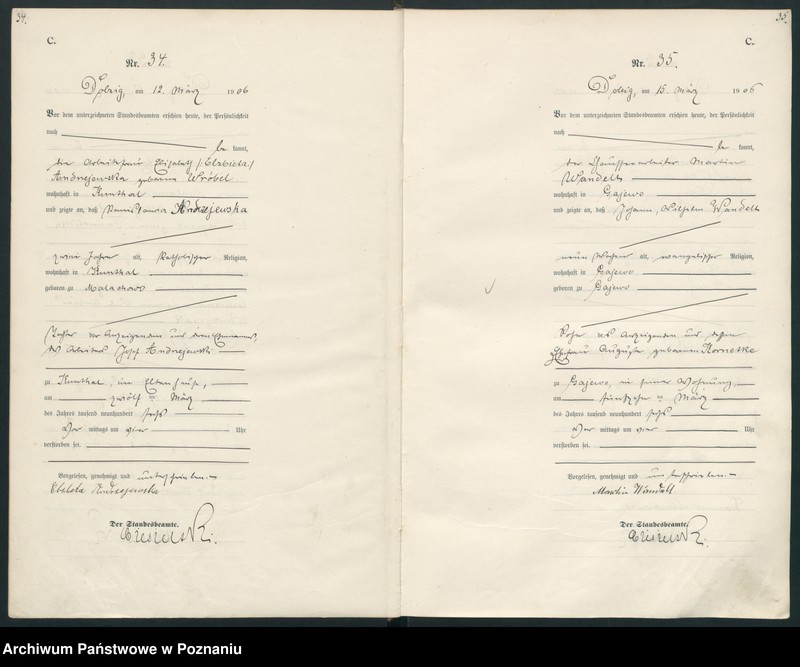 34.
C.
Nr. 34.
Dolzig, am 12. März 1906
Vor dem unterzeichneten Standesbeamten erschien heute, der Persönlichkeit
nach
be kannt,
die Arbeiterfrau Elisabeth /: Elzbieta :/
Andrzejewska geborene Wróbel
wohnhaft in Kunthal
und zeigte an, daß Andrzejewska
zwei Jahre alt, katholischer Religion,
wohnhaft in Kunthal
geboren zu Malachowo
Tochter der Anzeigenden und ihres Ehemannes,
des Arbeiters Josef Andrzejewski
zu Kunthal, im Elternhause,
am zwölften März
des Jahres tausend neunhundert sechs
Vor mittags um vier Uhr
verstorben sei.
Vorgelesen, genehmigt und unterschrieben.
Elzbieta Andrzejewska
Der Standesbeamte.
35.
C.
Nr. 35.
Dolzig, am 15. März 1906
Vor dem unterzeichneten Standesbeamten erschien heute, der Persönlichkeit
nach
be kannt,
der Martin
Wandelt
wohnhaft in Gajewo
und zeigte an, daß Johann, Wilhelm Wandelt
neun Wochen alt, evangelischer Religion,
wohnhaft in Gajewo
geboren zu Gajewo
Sohn des Anzeigenden und dessen
Ehefrau Auguste geborenen Kornetzke
zu Gajewo, in seiner Wohnung,
am fünfzehnten März
des Jahres tausend neunhundert sechs
Vor mittags um vier Uhr
verstorben sei.
Vorgelesen, genehmigt und unterschrieben.
Martin Wandelt
Der Standesbeamte.
Archiwum Państwowe w Poznaniu